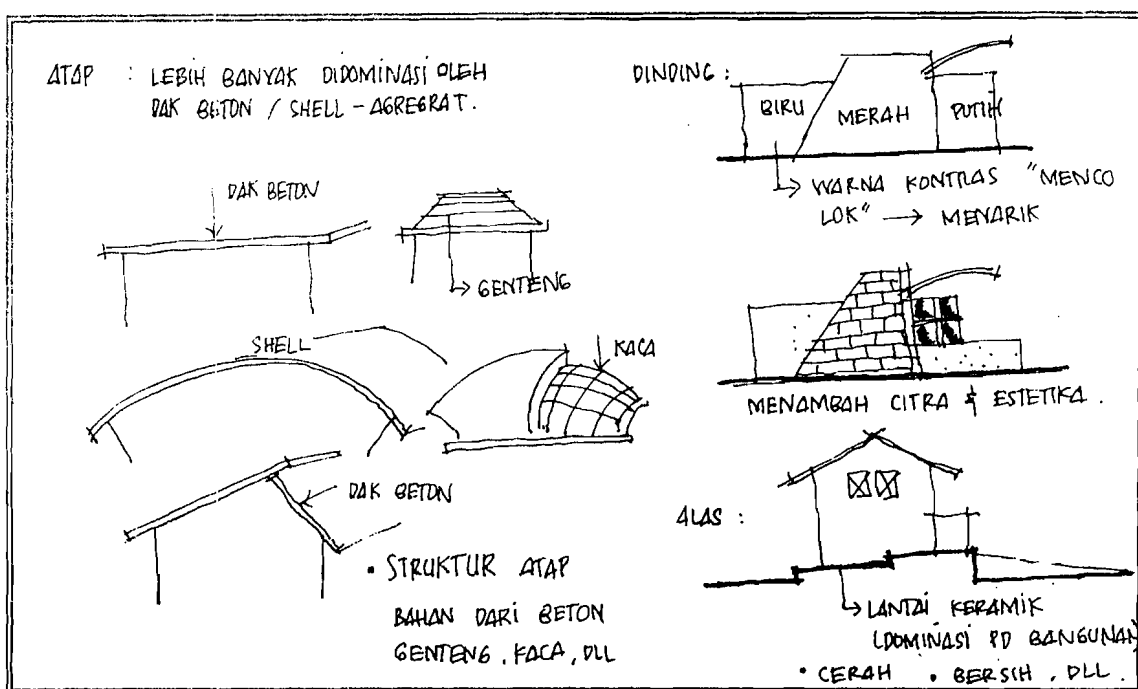 ATAP : LEBIH BANYAK DIDOMINASI OLEH
DAK BETON / SHELL - AGREGRAT.
DAK BETON
GENTENG
SHELL
KACA
DAK BETON
• STRUKTUR ATAP
BAHAN DARI BETON
GENTENG, KACA, DLL
DINDING :
BIRU MERAH PUTIH
WARNA KONTRAS "MENCO
LOK" → MENARIK
MENAMBAH CITRA & ESTETIKA.
ALAS :
LANTAI KERAMIK
(DOMINASI PD BANGUNAN)
• CERAH • BERSIH, DLL.